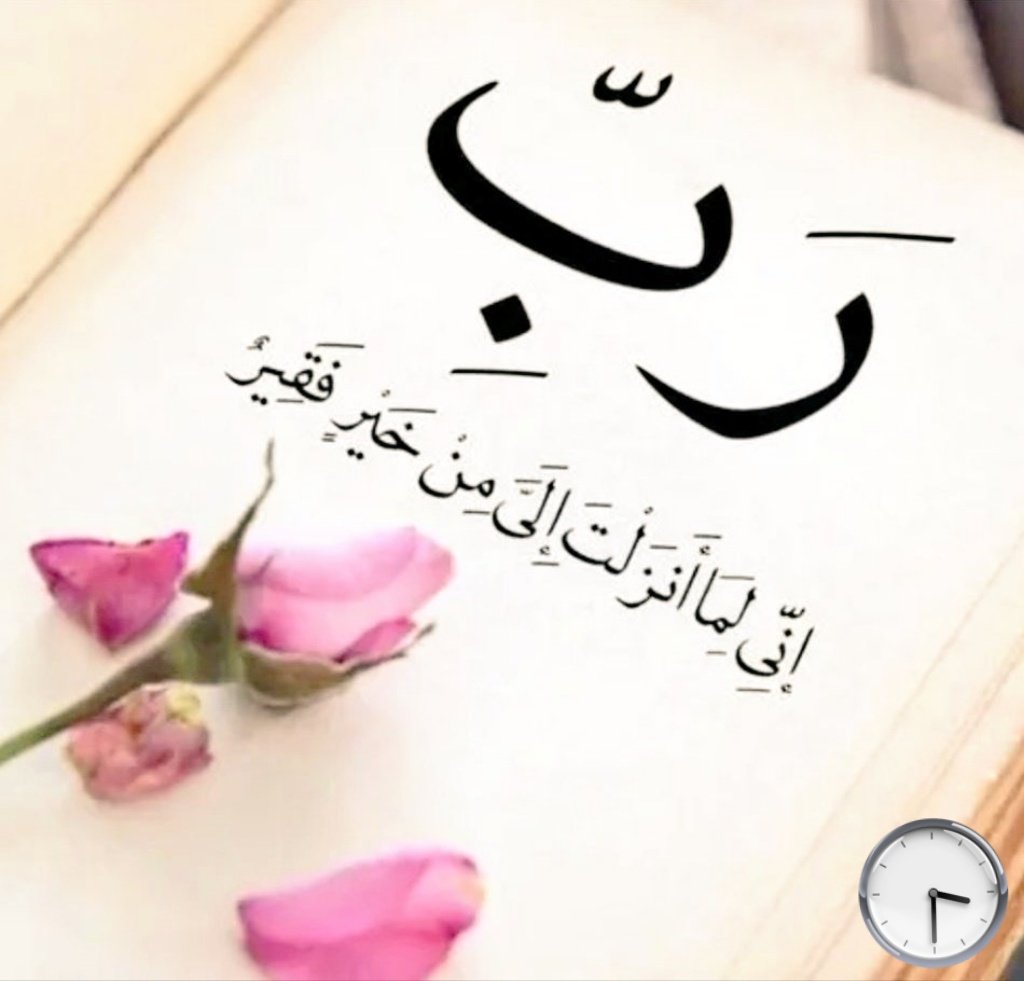 رَبِّ
إِنِّي لِمَا أَنزَلْتَ إِلَىَّ مِنْ خَيْرٍ فَقِيرٌ